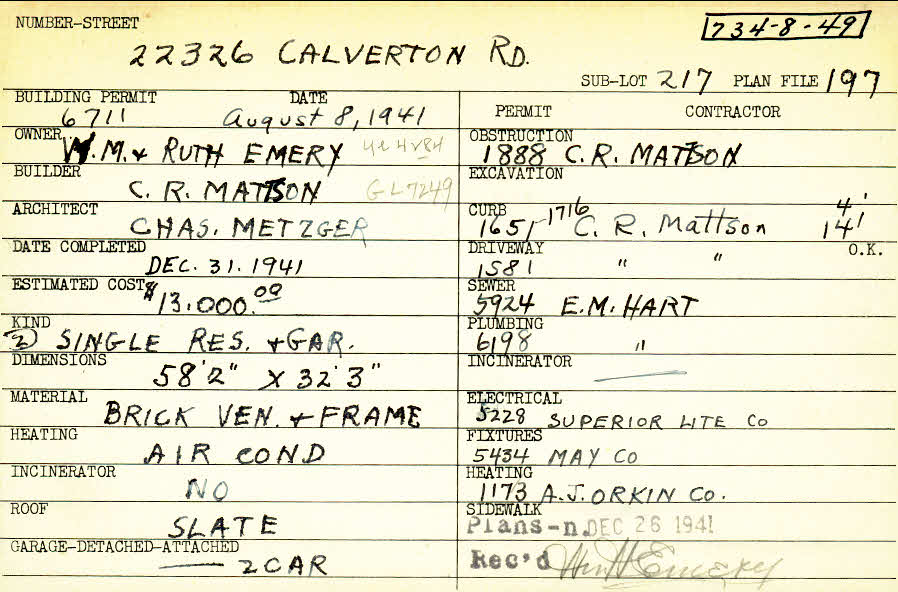 NUMBER-STREET
734-8-49
22326 CALVERTON RD.
SUB-LOT 217 PLAN FILE 197
BUILDING PERMIT DATE
6711 August 8, 1941
OWNER
W.M. & RUTH EMERY
BUILDER
C. R. MATTSON GL7249
ARCHITECT
CHAS. METZGER
DATE COMPLETED
DEC. 31. 1941
ESTIMATED COST
$13.000.00
KIND
② SINGLE RES. & GAR.
DIMENSIONS
58'2" X 32'3"
MATERIAL
BRICK VEN. & FRAME
HEATING
AIR COND
INCINERATOR
NO
ROOF
SLATE
GARAGE-DETACHED-ATTACHED
2 CAR
PERMIT CONTRACTOR
OBSTRUCTION
1888 C. R. MATTSON
EXCAVATION
CURB
1651-1716 C. R. Mattson 4' 14'
DRIVEWAY O.K.
1581 " "
SEWER
5924 E.M. HART
PLUMBING
6198 "
INCINERATOR
ELECTRICAL
5228 SUPERIOR LITE CO
FIXTURES
5434 MAY CO
HEATING
1173 A.J. ORKIN CO.
SIDEWALK
Plans-n. DEC 26 1941
Rec'd Wm H Emery